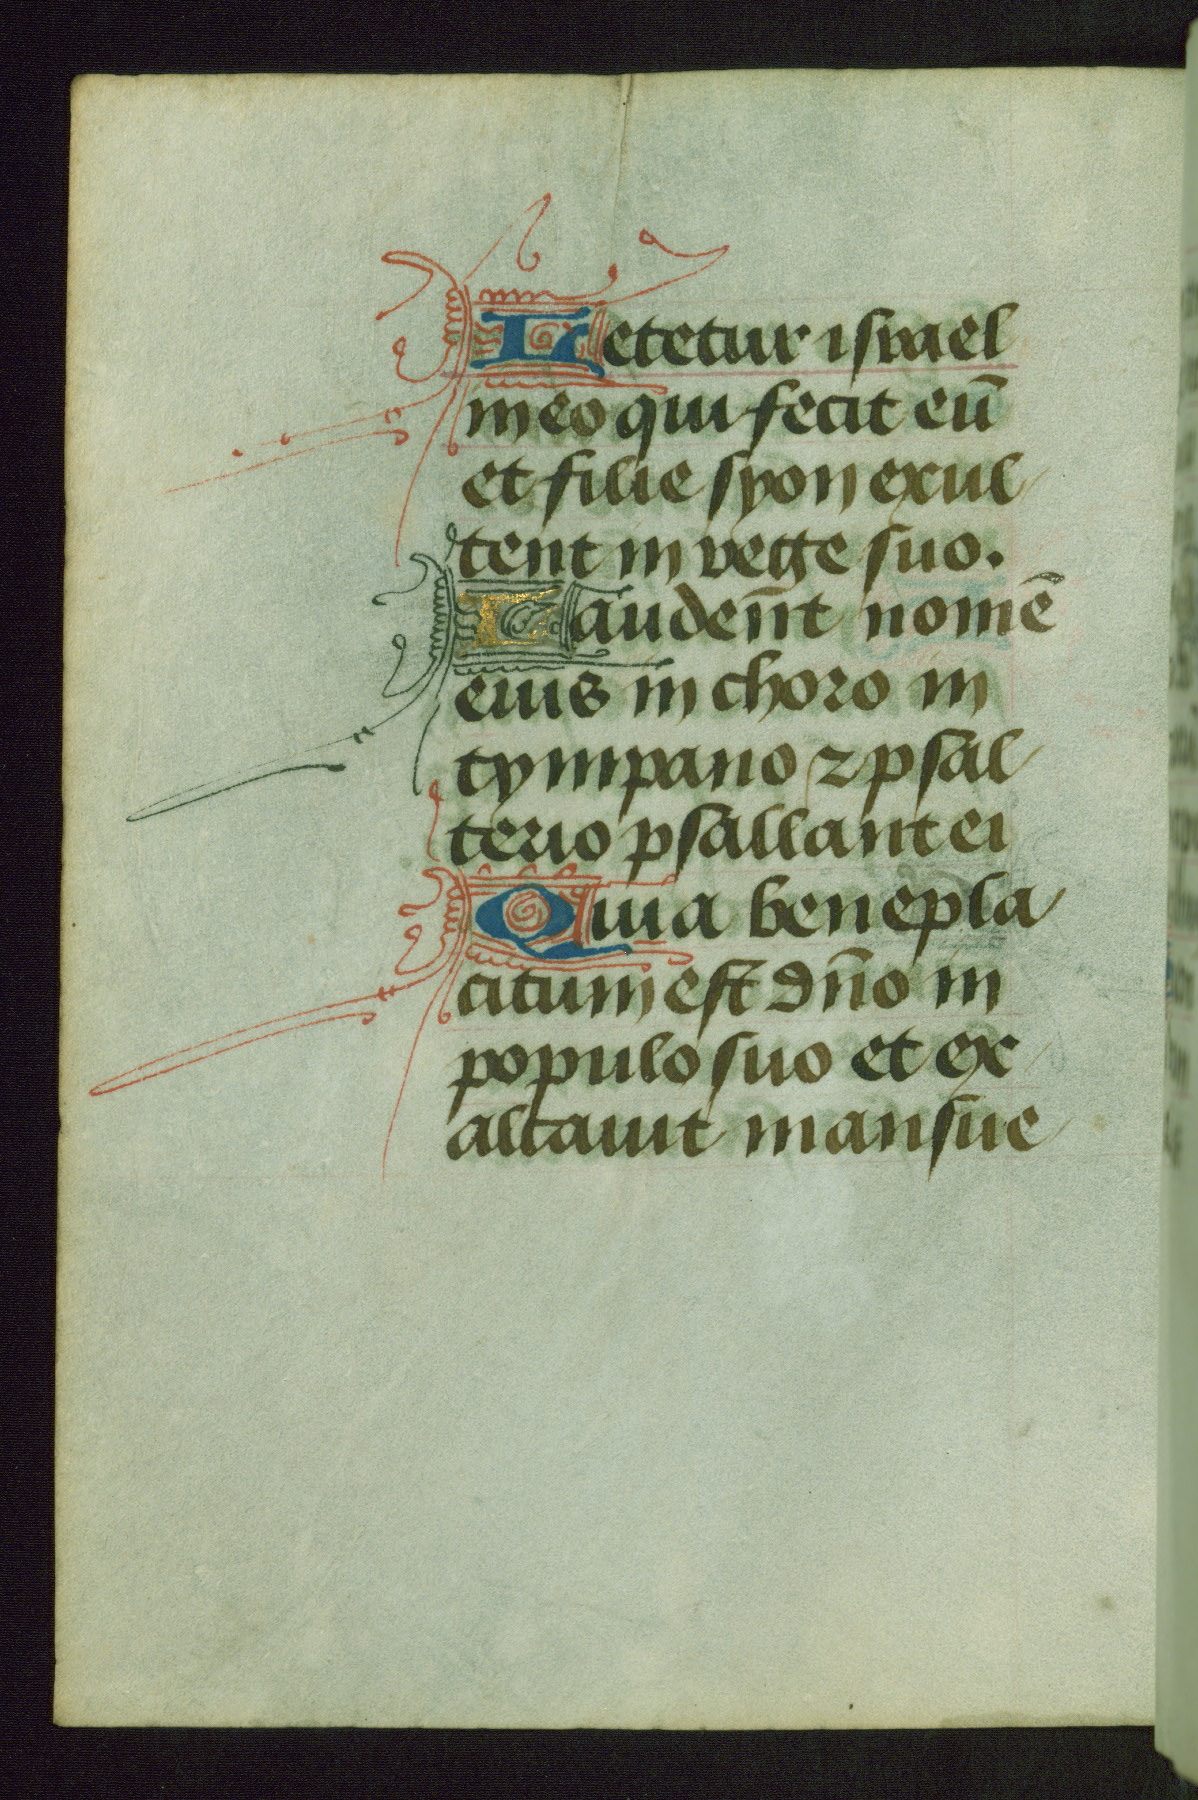 Letetur israel
in eo qui fecit eū
et filie syon exul
tent in rege suo.
Laudent̄ nomē
eius in choro in
tympano ⁊ psal
terio psallant ei
Quia benepla
citum est dn̄o in
populo suo et ex
altauit mansue